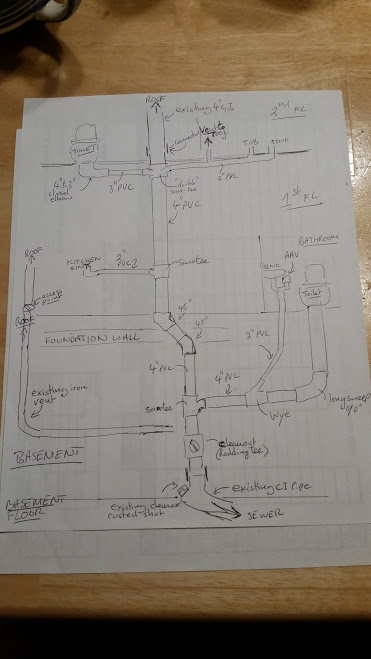 ROOF
existing 4" C.I.
2nd FL
connector
Vent to
roof
TOILET
TUB
SINK
4"x3"
closet
elbow
3" PVC
"double"
san-tee
2" PVC
4" PVC
1st FL
BATHROOM
ROOF
KITCHEN
SINK
Santee
SINK
AAV
Toilet
access
point
ROOF
45°
45°
FOUNDATION WALL
2" PVC
existing iron
vent
4" PVC
4" PVC
santee
Wye
long sweep
BASEMENT
cleanout
(Rodding Tee)
BASEMENT
FLOOR
existing CI Pipe
existing cleanout
rusted shut
SEWER